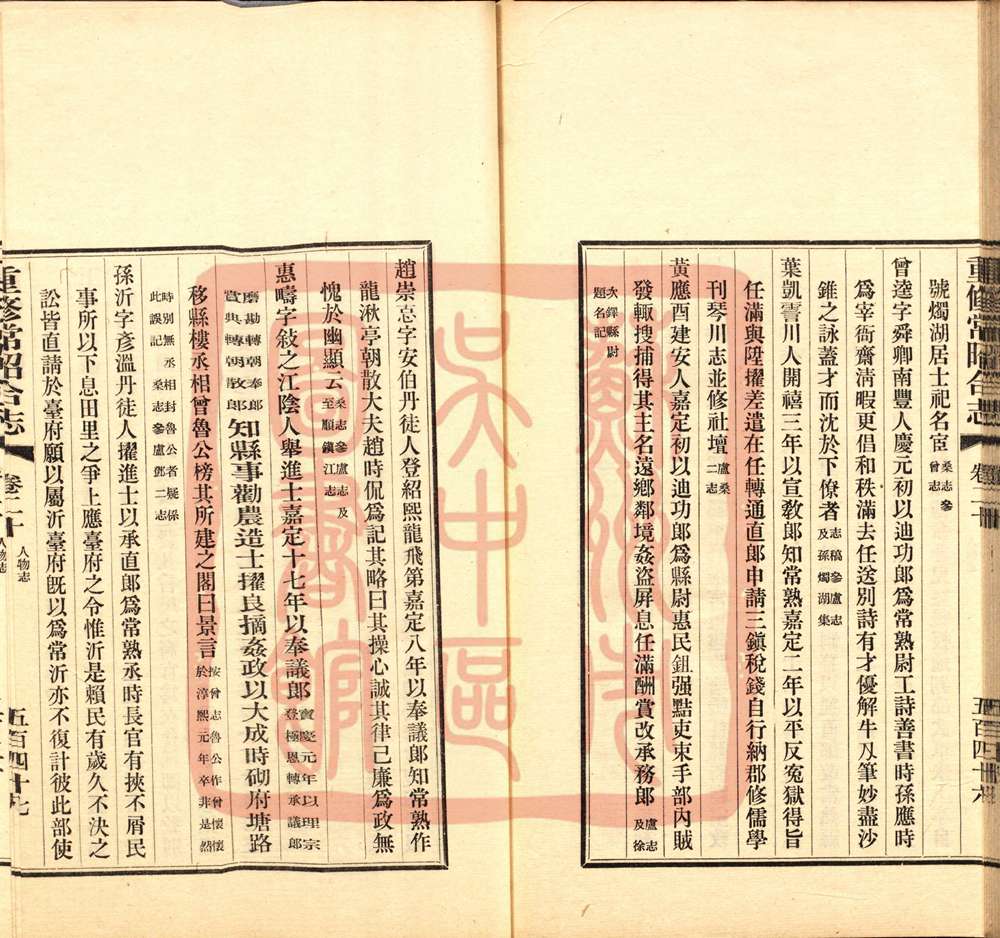 重修常昭合志
卷二十
五百四十六
號燭湖居士祀名宦桑志參曾志
曾逵字舜卿南豐人慶元初以迪功郎爲常熟尉工詩善書時孫應時
爲宰衙齋淸暇更倡和秩滿去任送別詩有才優解牛刄筆妙盡沙
錐之詠蓋才而沈於下僚者志稿參盧志及孫燭湖集
葉凱霅川人開禧三年以宣敎郎知常熟嘉定二年以平反寃獄得旨
任滿與陞擢差遣在任轉通直郎申請三鎭稅錢自行納郡修儒學
刊琴川志並修社壇盧桑二志
黃應酉建安人嘉定初以迪功郎爲縣尉惠民鉏强黠吏束手部內賊
發輒搜捕得其主名遠鄕鄰境姦盜屏息任滿酬賞改承務郎盧志及徐
次鐸縣尉題名記
趙崇忢字安伯丹徒人登紹熙龍飛第嘉定八年以奉議郎知常熟作
龍湫亭朝散大夫趙時侃爲記其略曰其操心誠其律已廉爲政無
愧於幽顯云桑志參盧志及至順鎭江志
惠疇字敍之江陰人舉進士嘉定十七年以奉議郎寶慶元年以理宗登極恩轉承議郎
磨勘轉朝奉郎賞典轉朝散郎知縣事勸農造士擢良摘姦政以大成時砌府塘路
移縣樓丞相曾魯公榜其所建之閣曰景言按曾志魯公作曾懷懷於淳熙元年卒非是然
時別無丞相封魯公者疑係此誤記桑志參盧鄧二志
孫沂字彥溫丹徒人擢進士以承直郎爲常熟丞時長官有挾不屑民
事所以下息田里之爭上應臺府之令惟沂是賴民有歲久不決之
訟皆直請於臺府願以屬沂臺府旣以爲常沂亦不復計彼此部使
重修常昭合志
卷二十
人物志
五百四十七